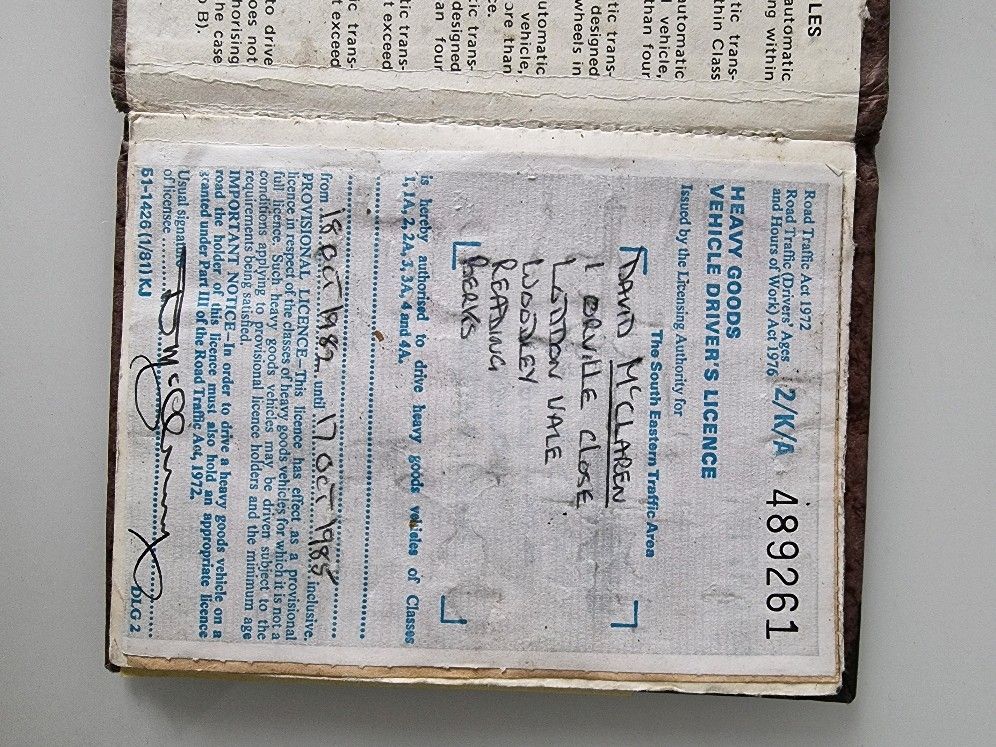 LES
automatic
ng within
tic trans-
thin Class
automatic
l vehicle,
than four
tic trans-
designed
wheels in
utomatic
vehicle,
ore than
ce.
ic trans-
designed
an four
tic trans-
t exceed
ic trans-
t exceed
to drive
oes not
horising
he case
o B).
Road Traffic Act 1972
Road Traffic (Drivers' Ages
and Hours of Work) Act 1976
2/K/A 489261
HEAVY GOODS
VEHICLE DRIVER'S LICENCE
Issued by the Licensing Authority for
The South Eastern Traffic Area
DAVID McCLAREN
1 ORVILLE CLOSE
LODDON VALE
WOODLEY
READING
BERKS
is hereby authorised to drive heavy goods vehicles of Classes
1, 1A, 2, 2A, 3, 3A, 4 and 4A.
from 18 OCT 1982 until 17 OCT 1985 inclusive.
PROVISIONAL LICENCE—This licence has effect as a provisional
licence in respect of the classes of heavy goods vehicles for which it is not a
full licence. Such heavy goods vehicles may be driven subject to the
conditions applying to provisional licence holders and the minimum age
requirements being satisfied.
IMPORTANT NOTICE—In order to drive a heavy goods vehicle on a
road the holder of this licence must also hold an appropriate licence
granted under Part III of the Road Traffic Act, 1972.
Usual signature
of licensee
51-1426 (1/81) KJ DLG 2